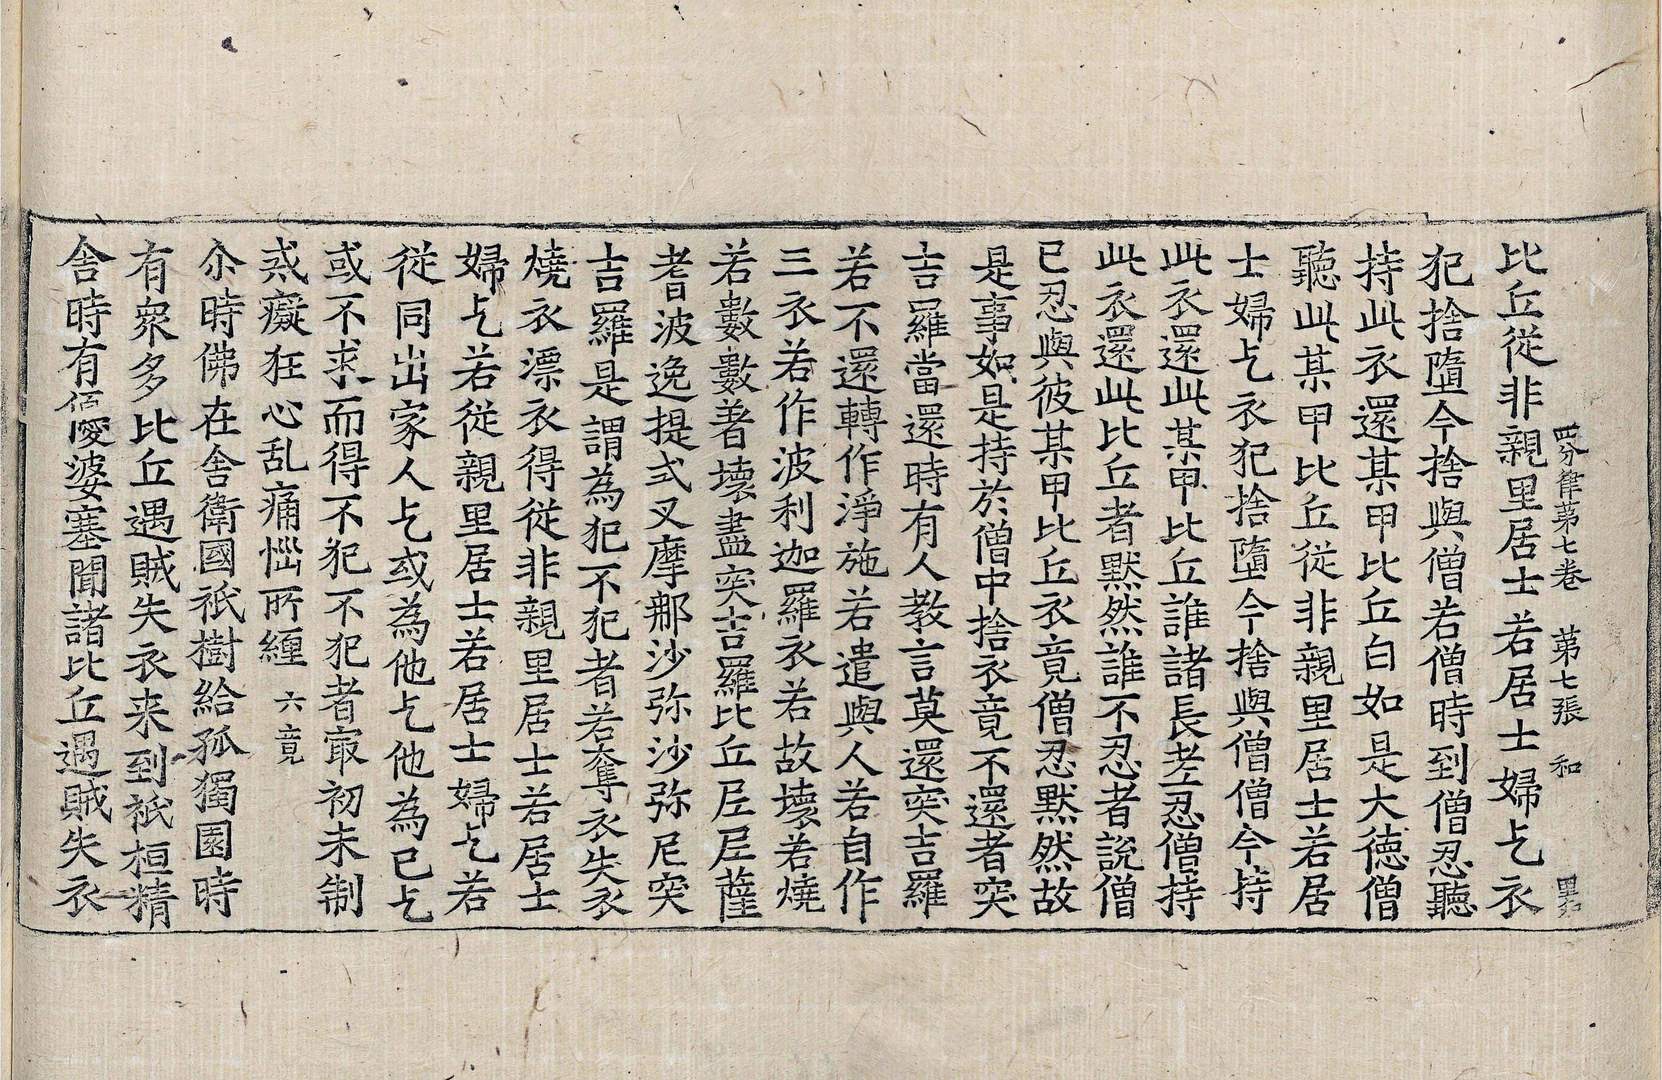 四分律苐七卷　苐七張　和
比丘從非親里居士若居士婦乞衣
犯捨墮今捨與僧若僧時到僧忍聽
持此衣還某甲比丘白如是大德僧
聽此某甲比丘從非親里居士若居
士婦乞衣犯捨墮今捨與僧僧今持
此衣還此某甲比丘誰諸長老忍僧持
此衣還此比丘者默然誰不忍者說僧
已忍與彼某甲比丘衣竟僧忍默然故
是事如是持於僧中捨衣竟不還者突
吉羅當還時有人教言莫還突吉羅
若不還轉作淨施若遣與人若自作
三衣若作波利迦羅衣若故壞若燒
若數數著壞盡突吉羅比丘尼尼薩
耆波逸提式叉摩那沙弥沙弥尼突
吉羅是謂為犯不犯者若奪衣失衣
燒衣漂衣得從非親里居士若居士
婦乞若從親里居士若居士婦乞若
從同出家人乞或為他乞他為已乞
或不求而得不犯不犯者㝡初未制
戒癡狂心乱痛惱所纏 六竟
尒時佛在舍衛國祇樹給孤獨園時
有衆多比丘遇賊失衣来到祇桓精
舍時有優婆塞聞諸比丘遇賊失衣